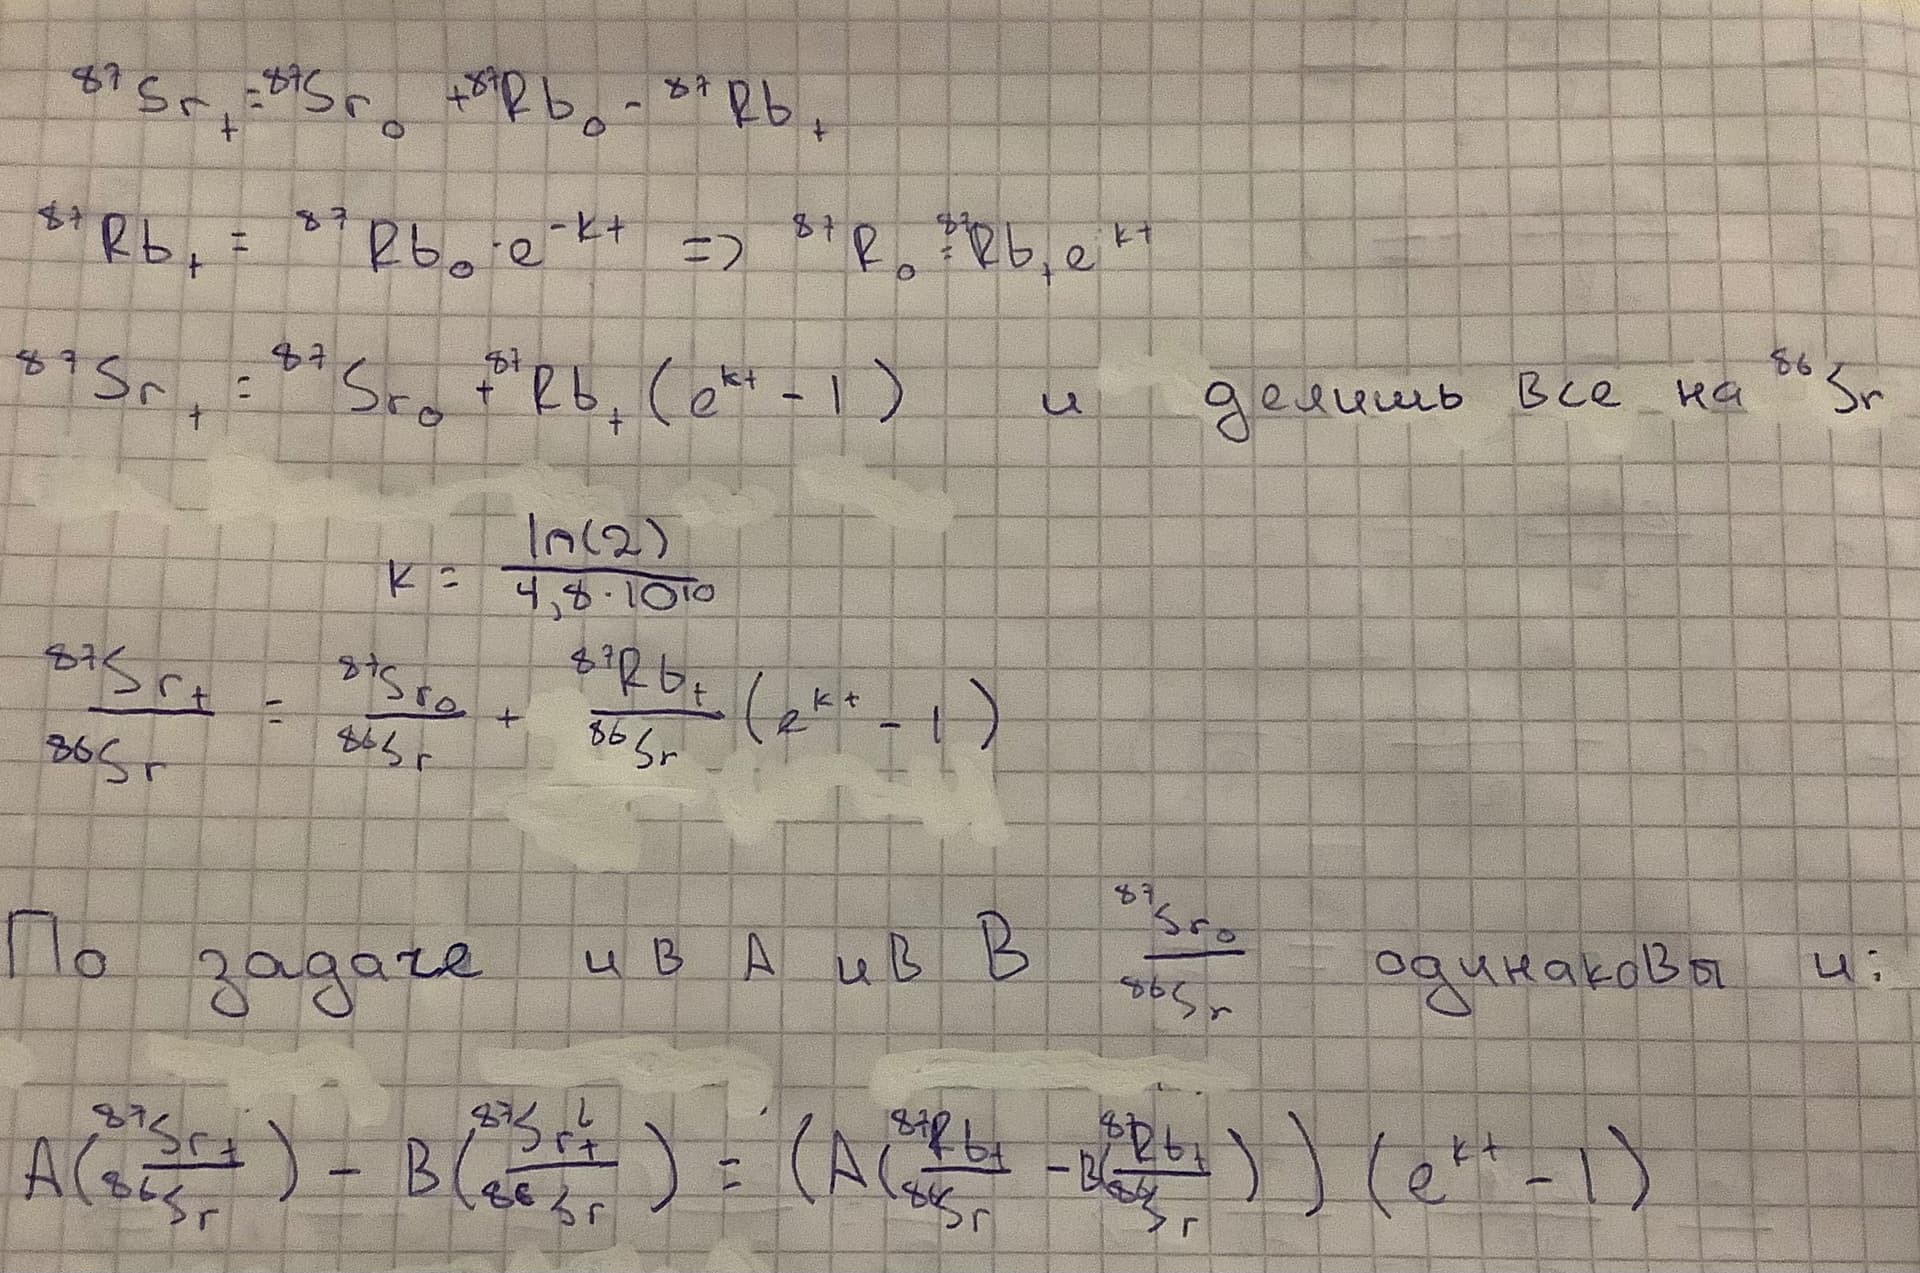 ⁸⁷Sr₊ = ⁸⁷Sr₀ + ⁸⁷Rb₀ - ⁸⁷Rb₊
⁸⁷Rb₊ = ⁸⁷Rb₀ · e^(-kt) => ⁸⁷R₀ = ⁸⁷Rb₊ e^(kt)
⁸⁷Sr₊ = ⁸⁷Sr₀ + ⁸⁷Rb₊ (e^(kt) - 1) и делишь все на ⁸⁶Sr
k = ln(2) / 4,8·10¹⁰
⁸⁷Sr₊ / ⁸⁶Sr = ⁸⁷Sr₀ / ⁸⁶Sr + ⁸⁷Rb₊ / ⁸⁶Sr (e^(kt) - 1)
По задаче и в A и в B ⁸⁷Sr₀ / ⁸⁶Sr одинаковы и:
A(⁸⁷Sr₊ / ⁸⁶Sr) - B(⁸⁷Sr₊ / ⁸⁶Sr) = (A(⁸⁷Rb₊ / ⁸⁶Sr - B(⁸⁷Rb₊ / ⁸⁶Sr)) (e^(kt) - 1)